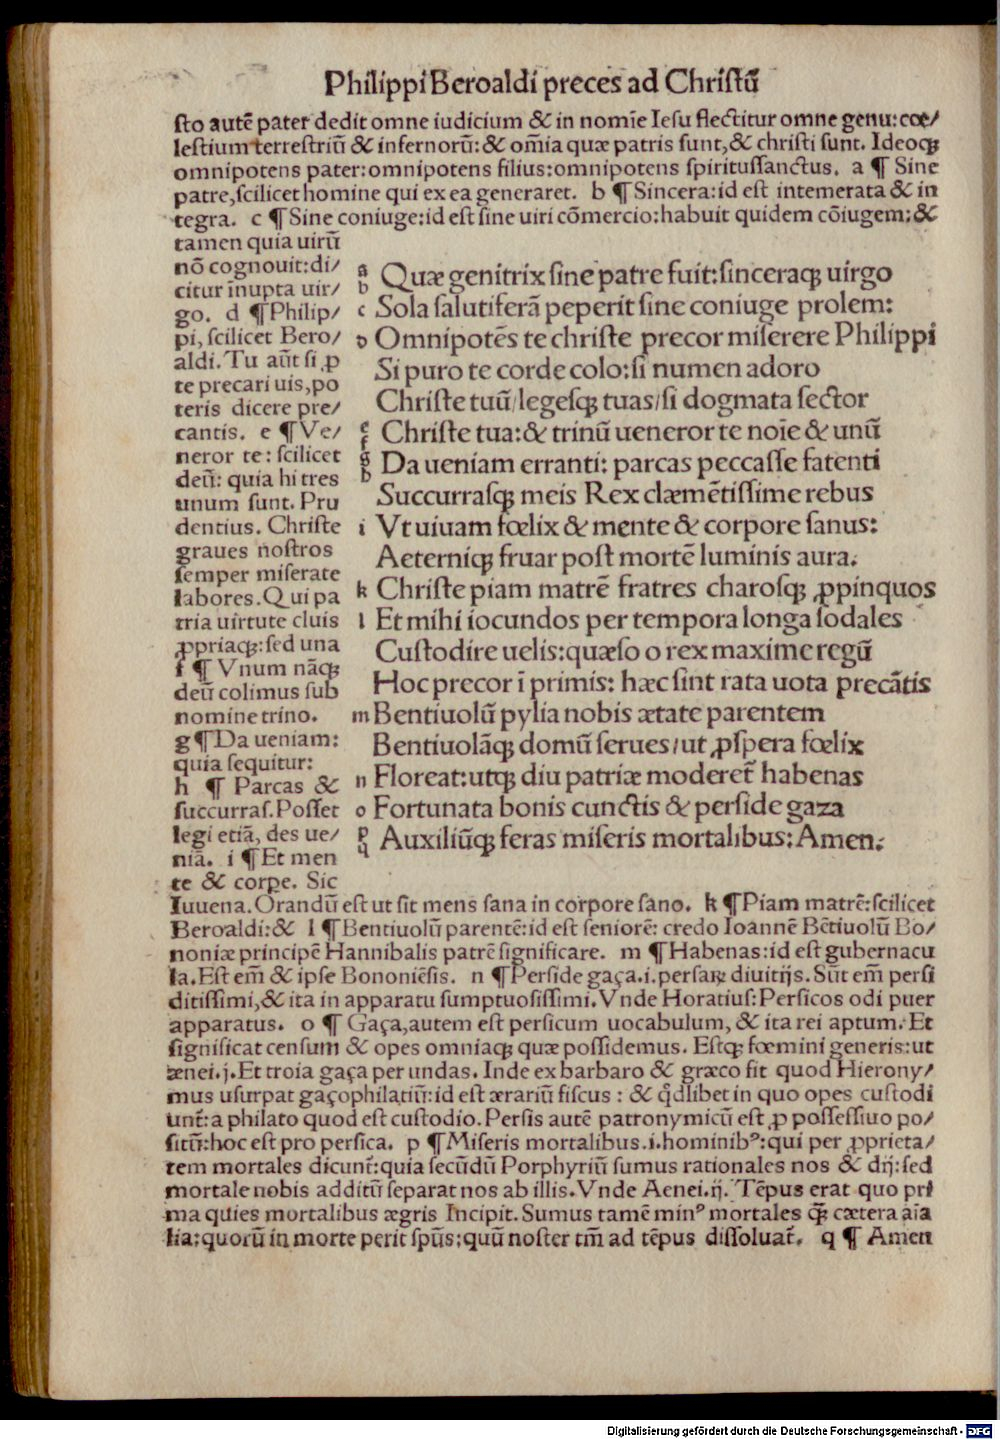 Philippi Beroaldi preces ad Christũ
sto autē pater dedit omne iudicium & in nomīe Iesu flectitur omne genu: cœ/
lestium terrestriũ & infernorũ: & om̄ia quæ patris sunt, & christi sunt. Ideoqꝫ
omnipotens pater: omnipotens filius: omnipotens spiritussanctus. a ¶ Sine
patre, scilicet homine qui ex ea generaret. b ¶ Sincera: id est intemerata & in
tegra. c ¶ Sine coniuge: id est sine uiri cōmercio: habuit quidem cōiugem: &
tamen quia uirũ
nō cognouit: di/
citur īnupta uir/
go. d ¶ Philip/
pi, scilicet Bero/
aldi. Tu aũt si ꝓ
te precari uis, po
teris dicere pre/
cantis. e ¶ Ve/
neror te: scilicet
deũ: quia hi tres
unum sunt. Pru
dentius. Christe
graues nostros
semper miserate
labores. Qui pa
tria uirtute cluis
ꝓpriaqꝫ: sed una
f ¶ Vnum nãqꝫ
deũ colimus sub
nomine trino.
g ¶ Da ueniam:
quia sequitur:
h ¶ Parcas &
succurras. Posset
legi etiã, des ue/
niã. i ¶ Et men
te & corpe. Sic
a b Quæ genitrix sine patre fuit: sinceraqꝫ uirgo
c Sola salutiferã peperit sine coniuge prolem:
d Omnipotēs te christe precor miserere Philippi
Si puro te corde colo: si numen adoro
Christe tuũ/ legesqꝫ tuas/ si dogmata sector
e f Christe tua: & trinũ ueneror te noīe & unũ
g h Da ueniam erranti: parcas peccasse fatenti
Succurrasqꝫ meis Rex clæmētissime rebus
i Vt uiuam fœlix & mente & corpore sanus:
Aeterniqꝫ fruar post mortē luminis aura.
k Christe piam matrē fratres charosqꝫ ꝓpinquos
l Et mihi iocundos per tempora longa sodales
Custodire uelis: quæso o rex maxime regũ
Hoc precor ī primis: hæc sint rata uota precãtis
m Bentiuolũ pylia nobis ætate parentem
Bentiuolãqꝫ domũ serues/ ut ꝓspera fœlix
n Floreat: utqꝫ diu patriæ moderet̃ habenas
o Fortunata bonis cunctis & perside gaza
p q Auxiliũqꝫ feras miseris mortalibus: Amen.
Iuuena. Orandũ est ut sit mens sana in corpore sano. k ¶ Piam matrē: scilicet
Beroaldi: & l ¶ Bentiuolũ parentē: id est seniorē: credo Ioannē Bētiuolũ Bo/
noniæ principē Hannibalis patrē significare. m ¶ Habenas: id est gubernacu
la. Est em̄ & ipse Bononiēsis. n ¶ Perside gaça .i. persaꝝ diuitijs. Sũt em̄ persi
ditissimi, & ita in apparatu sumptuosissimi. Vnde Horatius: Persicos odi puer
apparatus. o ¶ Gaça, autem est persicum uocabulum, & ita rei aptum. Et
significat censum & opes omniaqꝫ quæ possidemus. Estqꝫ fœmini generis: ut
ænei. j. Et troia gaça per undas. Inde ex barbaro & græco fit quod Hierony/
mus usurpat gaçophilatiũ: id est ærariũ fiscus: & q̇dlibet in quo opes custodi
unt̃: a philato quod est custodio. Persis autē patronymicũ est ꝓ possessiuo po/
sitũ: hoc est pro persica. p ¶ Miseris mortalibus .i. hominibꝰ: qui per ꝓprieta/
tem mortales dicunt̃: quia secũdũ Porphyriũ sumus rationales nos & dij: sed
mortale nobis additũ separat nos ab illis. Vnde Aenei. ij. Tēpus erat quo pri
ma quies mortalibus ægris Incipit. Sumus tamē minꝰ mortales q̃ꝫ cætera aīa
lia: quorũ in morte perit spũs: quũ noster tm̄ ad tēpus dissoluat̃. q ¶ Amen
Digitalisierung gefördert durch die Deutsche Forschungsgemeinschaft - DFG